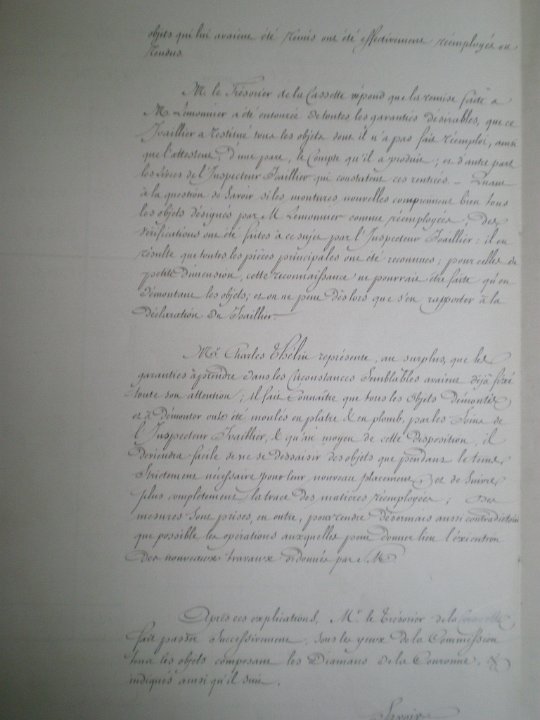 objets qui lui avaient été remis ont été effectivement réemployés ou
rendus.
M. le Trésorier de la Cassette répond que la remise faite à
M. Lemonnier a été entourée de toutes les garanties désirables, que ce
Joaillier a restitué tous les objets dont il n'a pas fait réemploi, ainsi
que l'attestent, d'une part, le Compte qu'il a produit; et d'autre part
les Livres de l'Inspecteur Joaillier qui constatent ces rentrées. Quant
à la question de savoir si les montures nouvelles comprennent bien tous
les objets désignés par M. Lemonnier comme réemployés; Des
vérifications ont été faites à ce sujet par l'Inspecteur Joaillier; il en
résulte que toutes les pièces principales ont été reconnues; pour celles de
petite dimension, cette reconnaissance ne pourrait être faite qu'en
démontant les objets; et on ne peut dès lors que s'en rapporter à la
déclaration du Joaillier.
Mr. Charles Thélin représente, au surplus, que les
garanties à prendre dans les Circonstances Semblables avaient déjà fixé
toute son attention; il fait Connaître que tous les Objets démontés
et à démonter ont été moulés en plâtre & en plomb, par les Soins de
l'Inspecteur Joaillier, & qu'au moyen de cette disposition, il
deviendra facile de ne se dessaisir des objets que pendant le tems
strictement nécessaire pour leur nouveau placement, et de suivre
plus complètement la trace des matières réemployées; Des
mesures sont prises, en outre, pour rendre désormais aussi contradictoires
que possible les opérations auxquelles peut donner lieu l'exécution
des nouveaux travaux ordonnés par S.M.
Après ces explications, Mr. le Trésorier de la Cassette
fait passer successivement sous les yeux de la Commission
tous les objets composant les Diamans de la Couronne, &
indiqués ainsi qu'il suit.
Savoir